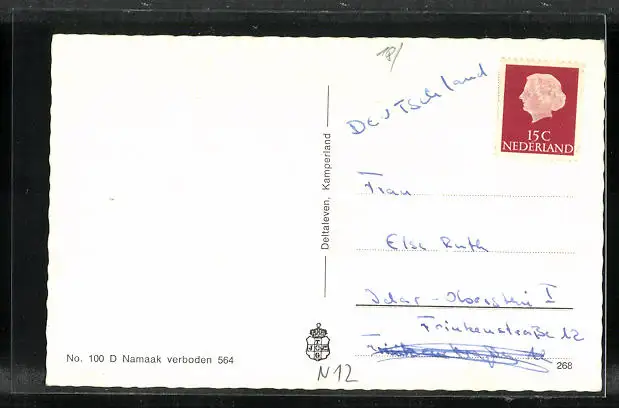 18/
Deutschland
15 C
NEDERLAND
Deltaleven, Kamperland
Frau
Else Ruth
Idar - Oberstein I
Frinkenstraße 12
No. 100 D Namaak verboden 564
268
N12